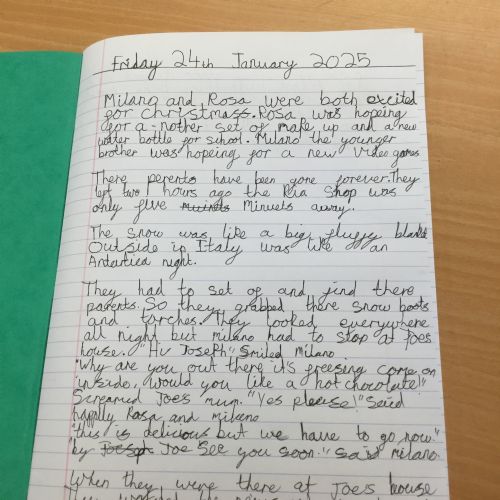 Friday 24th January 2025
Milano and Rosa were both excited
for christmass. Rosa was hopeing
for a-nother set of make up and a new
water bottle for school. Milano the younger
brother was hopeing for a new video games
There parents have been gone forever. They
left two hours ago the Pia Shop was
only five Minuets away.
The snow was like a big fluffy blanket
Outside in Italy was like an
Antartica night.
They had to set of and find there
parents. So they grabbed there snow boots
and torches. They looked everywhere
all night but milano had to stop at Joes
house. "Hi Joseph" Smiled Milano.
"Why are you out there it's freesing come on
inside, would you like a hot chocolate"
Screamed Joe's mum. "Yes please!" Said
happily Rosa and milano
"this is delicious but we have to go now."
"by Joe See you soon." said milano.
When they were there at Joe's house